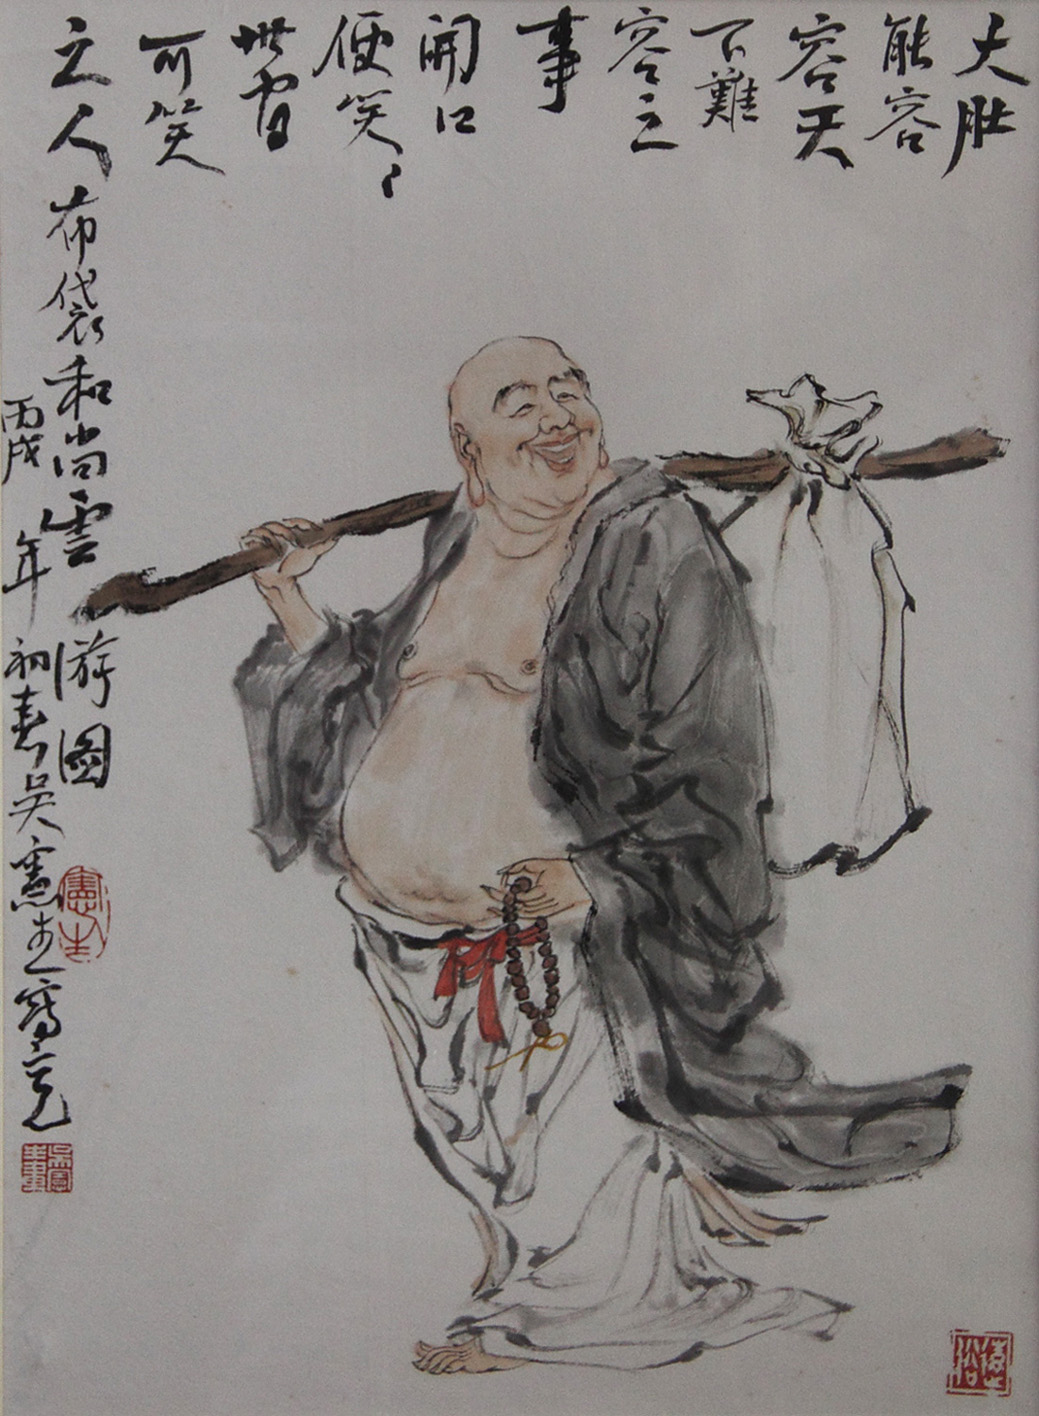 大肚
能容
容天
下難
容之
事
開口
便笑〻
世間
可笑
之人布袋和尚雲游圖
丙戌年初春吳憲生寫
憲生